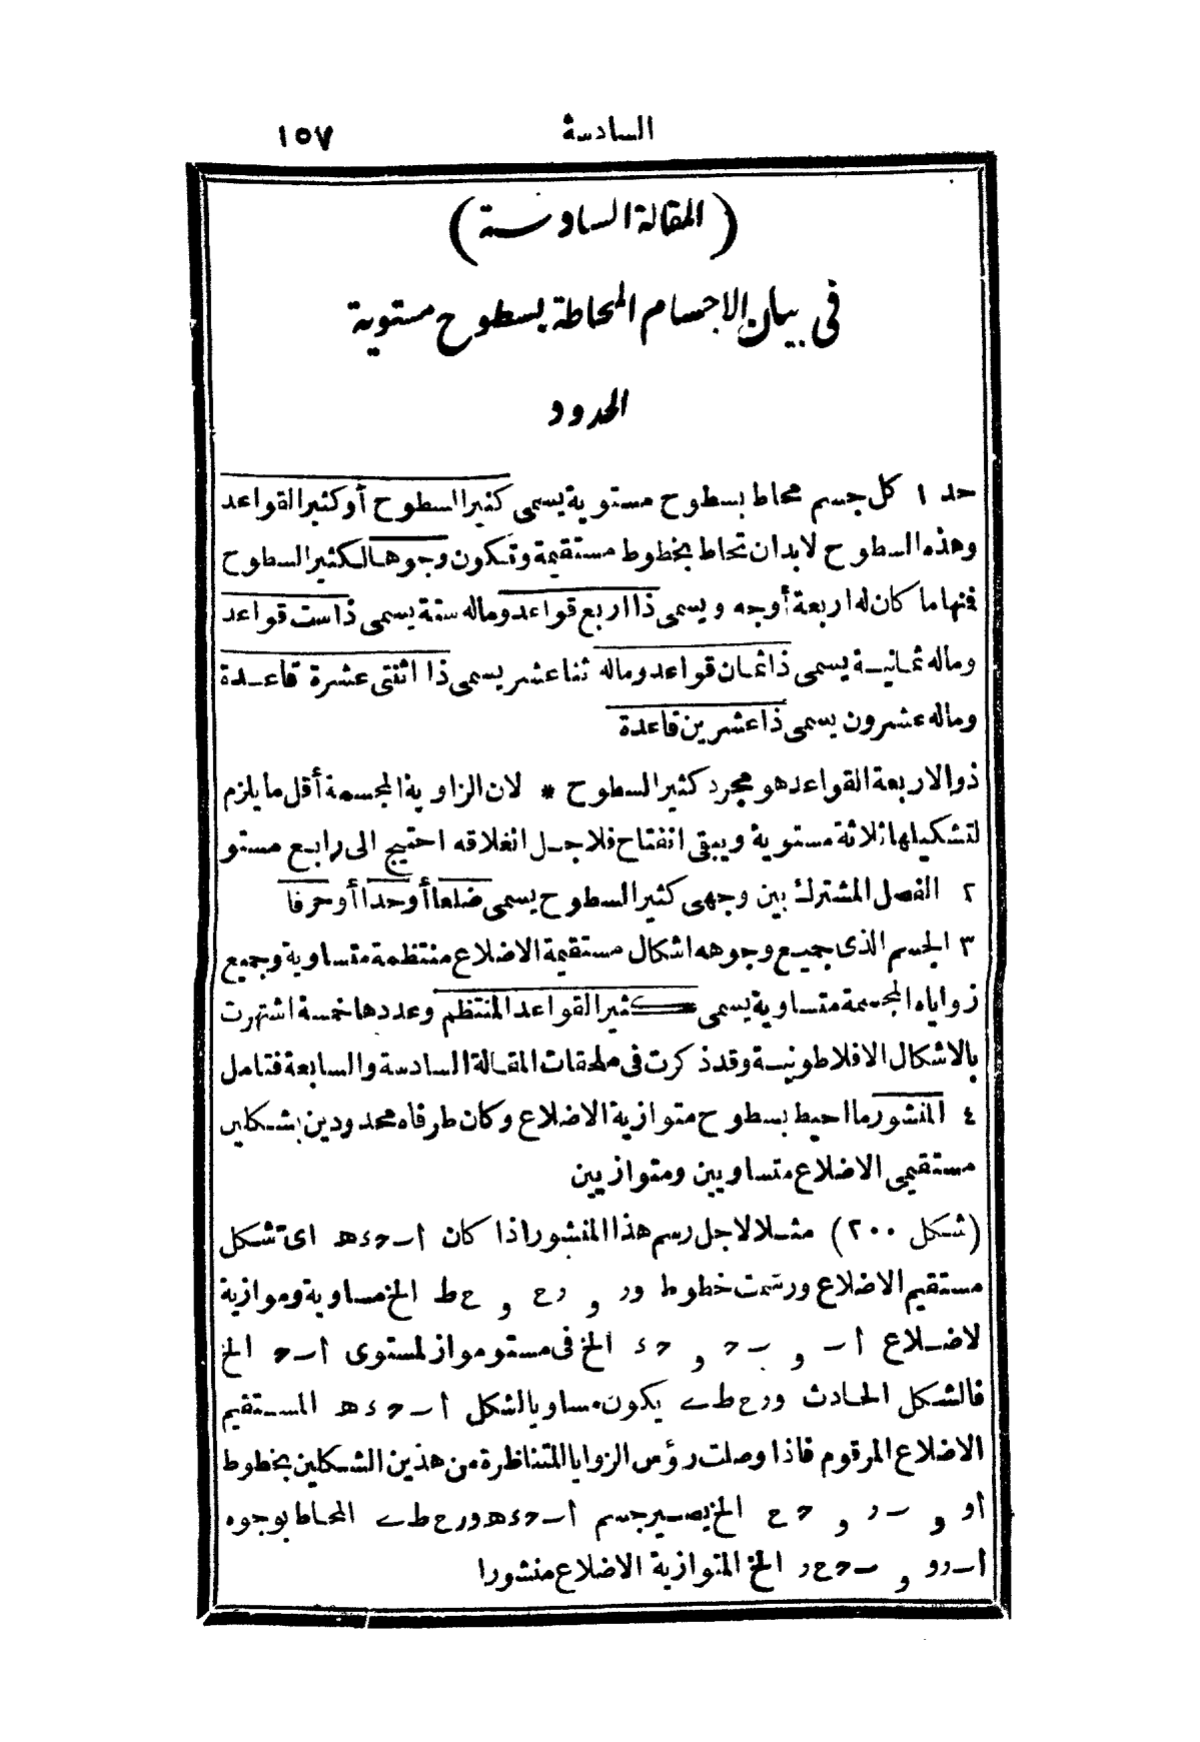 السادسة ١٥٧
(المقالة السادسة)
فى بيان الاجسام المحاطة بسطوح مستوية
الحدود
حد ١ كل جسم محاط بسطوح مستوية يسمى كثير السطوح أو كثير القواعد
وهذه السطوح لابد ان تحاط بخطوط مستقيمة وتكون وجوها لكثير السطوح
فنها ما كان له اربعة أوجه ويسمى ذا اربع قواعد وماله ستة يسمى ذا ست قواعد
وماله ثمانية يسمى ذا ثمان قواعد وماله ثنا عشر يسمى ذا اثنتى عشرة قاعدة
وماله عشرون يسمى ذا عشرين قاعدة
ذو الاربعة القواعد هو مجرد كثير السطوح * لان الزاوية المجسمة أقل ما يلزم
لتشكيلها ثلاثة مستوية ويبقى انفتاح فلاجل انغلاقه احتيج الى رابع مستو
٢ الفصل المشترك بين وجهى كثير السطوح يسمى ضلعا أو حدا أو حرفا
٣ الجسم الذى جميع وجوهه اشكال مستقيمة الاضلاع منتظمة متساوية وجميع
زواياه المجسمة متساوية يسمى كثير القواعد المنتظم وعددها خمسة اشتهرت
بالاشكال الافلاطونية وقد ذكرت فى ملحقات المقالة السادسة والسابعة فتامل
٤ المنشور ما احيط بسطوح متوازية الاضلاع وكان طرفاه محدودين بشكلين
مستقيمى الاضلاع متساويين ومتوازيين
(شكل ٢٠٠) مثلا لاجل رسم هذا المنشور اذا كان ا ب ح د ه اى تشكل
مستقيم الاضلاع ورسمت خطوط ور و رح و ح ط الخ مساوية وموازية
لاضلاع ا ب و ب ح و ح د الخ فى مستو مواز لمستوى ا ب ح الخ
فالشكل الحادث و ر ح ط ى يكون مساويا لشكل ا ب ح د ه المستقيم
الاضلاع المرقوم فاذا وصلت رؤس الزوايا المتناظرة من هذين الشكلين بخطوط
او و ب ر و ح ح الخ يصير جسم ا ب ح د ه و ر ح ط ى المحاط بوجوه
ا ب ر و و ب ح ح ر الخ المتوازية الاضلاع منشورا